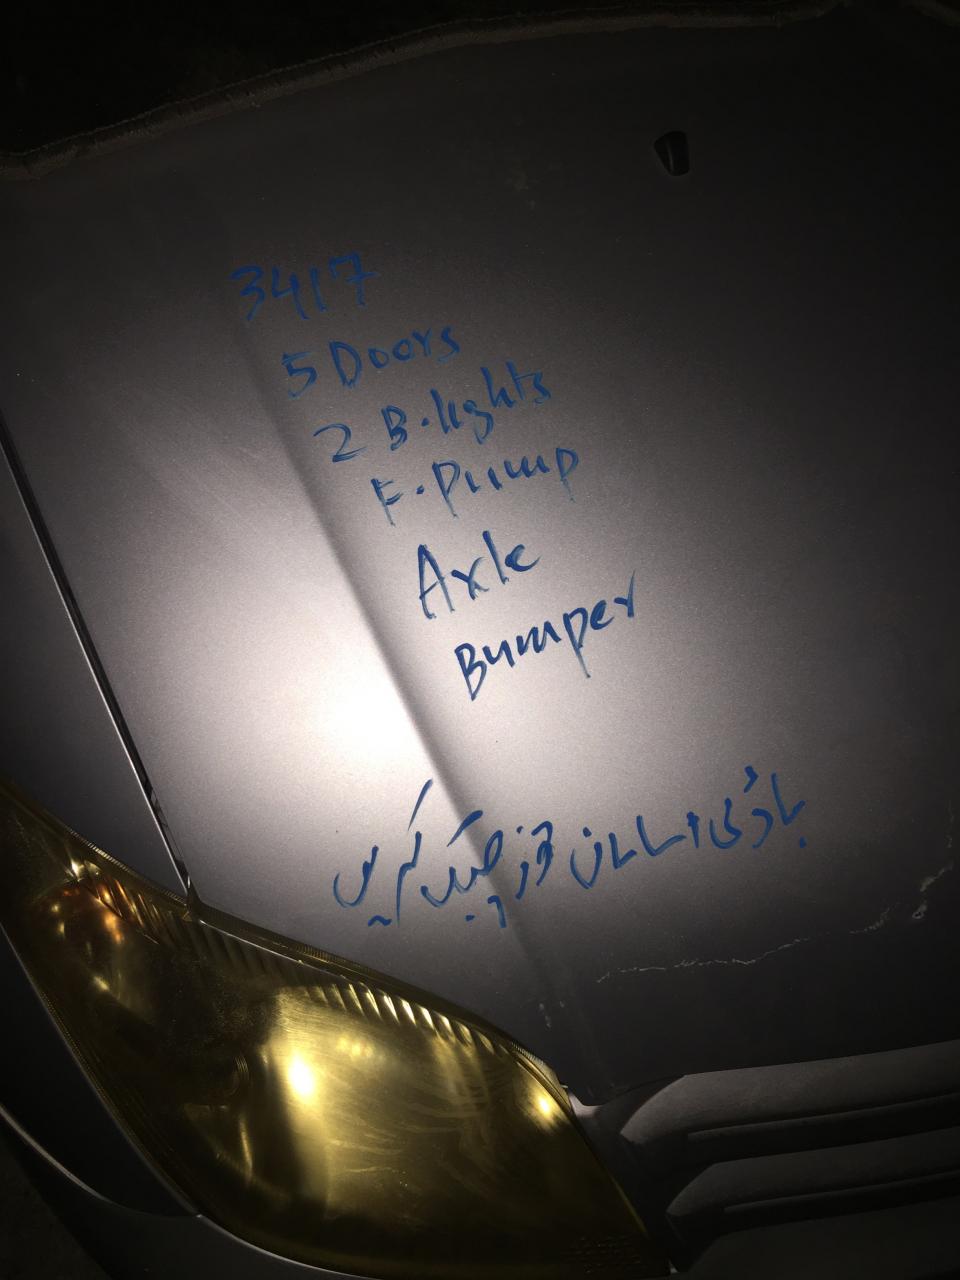 3417
5 Doors
2 B.lights
F.Pump
Axle
Bumper
باڈی سامان چیک کریں